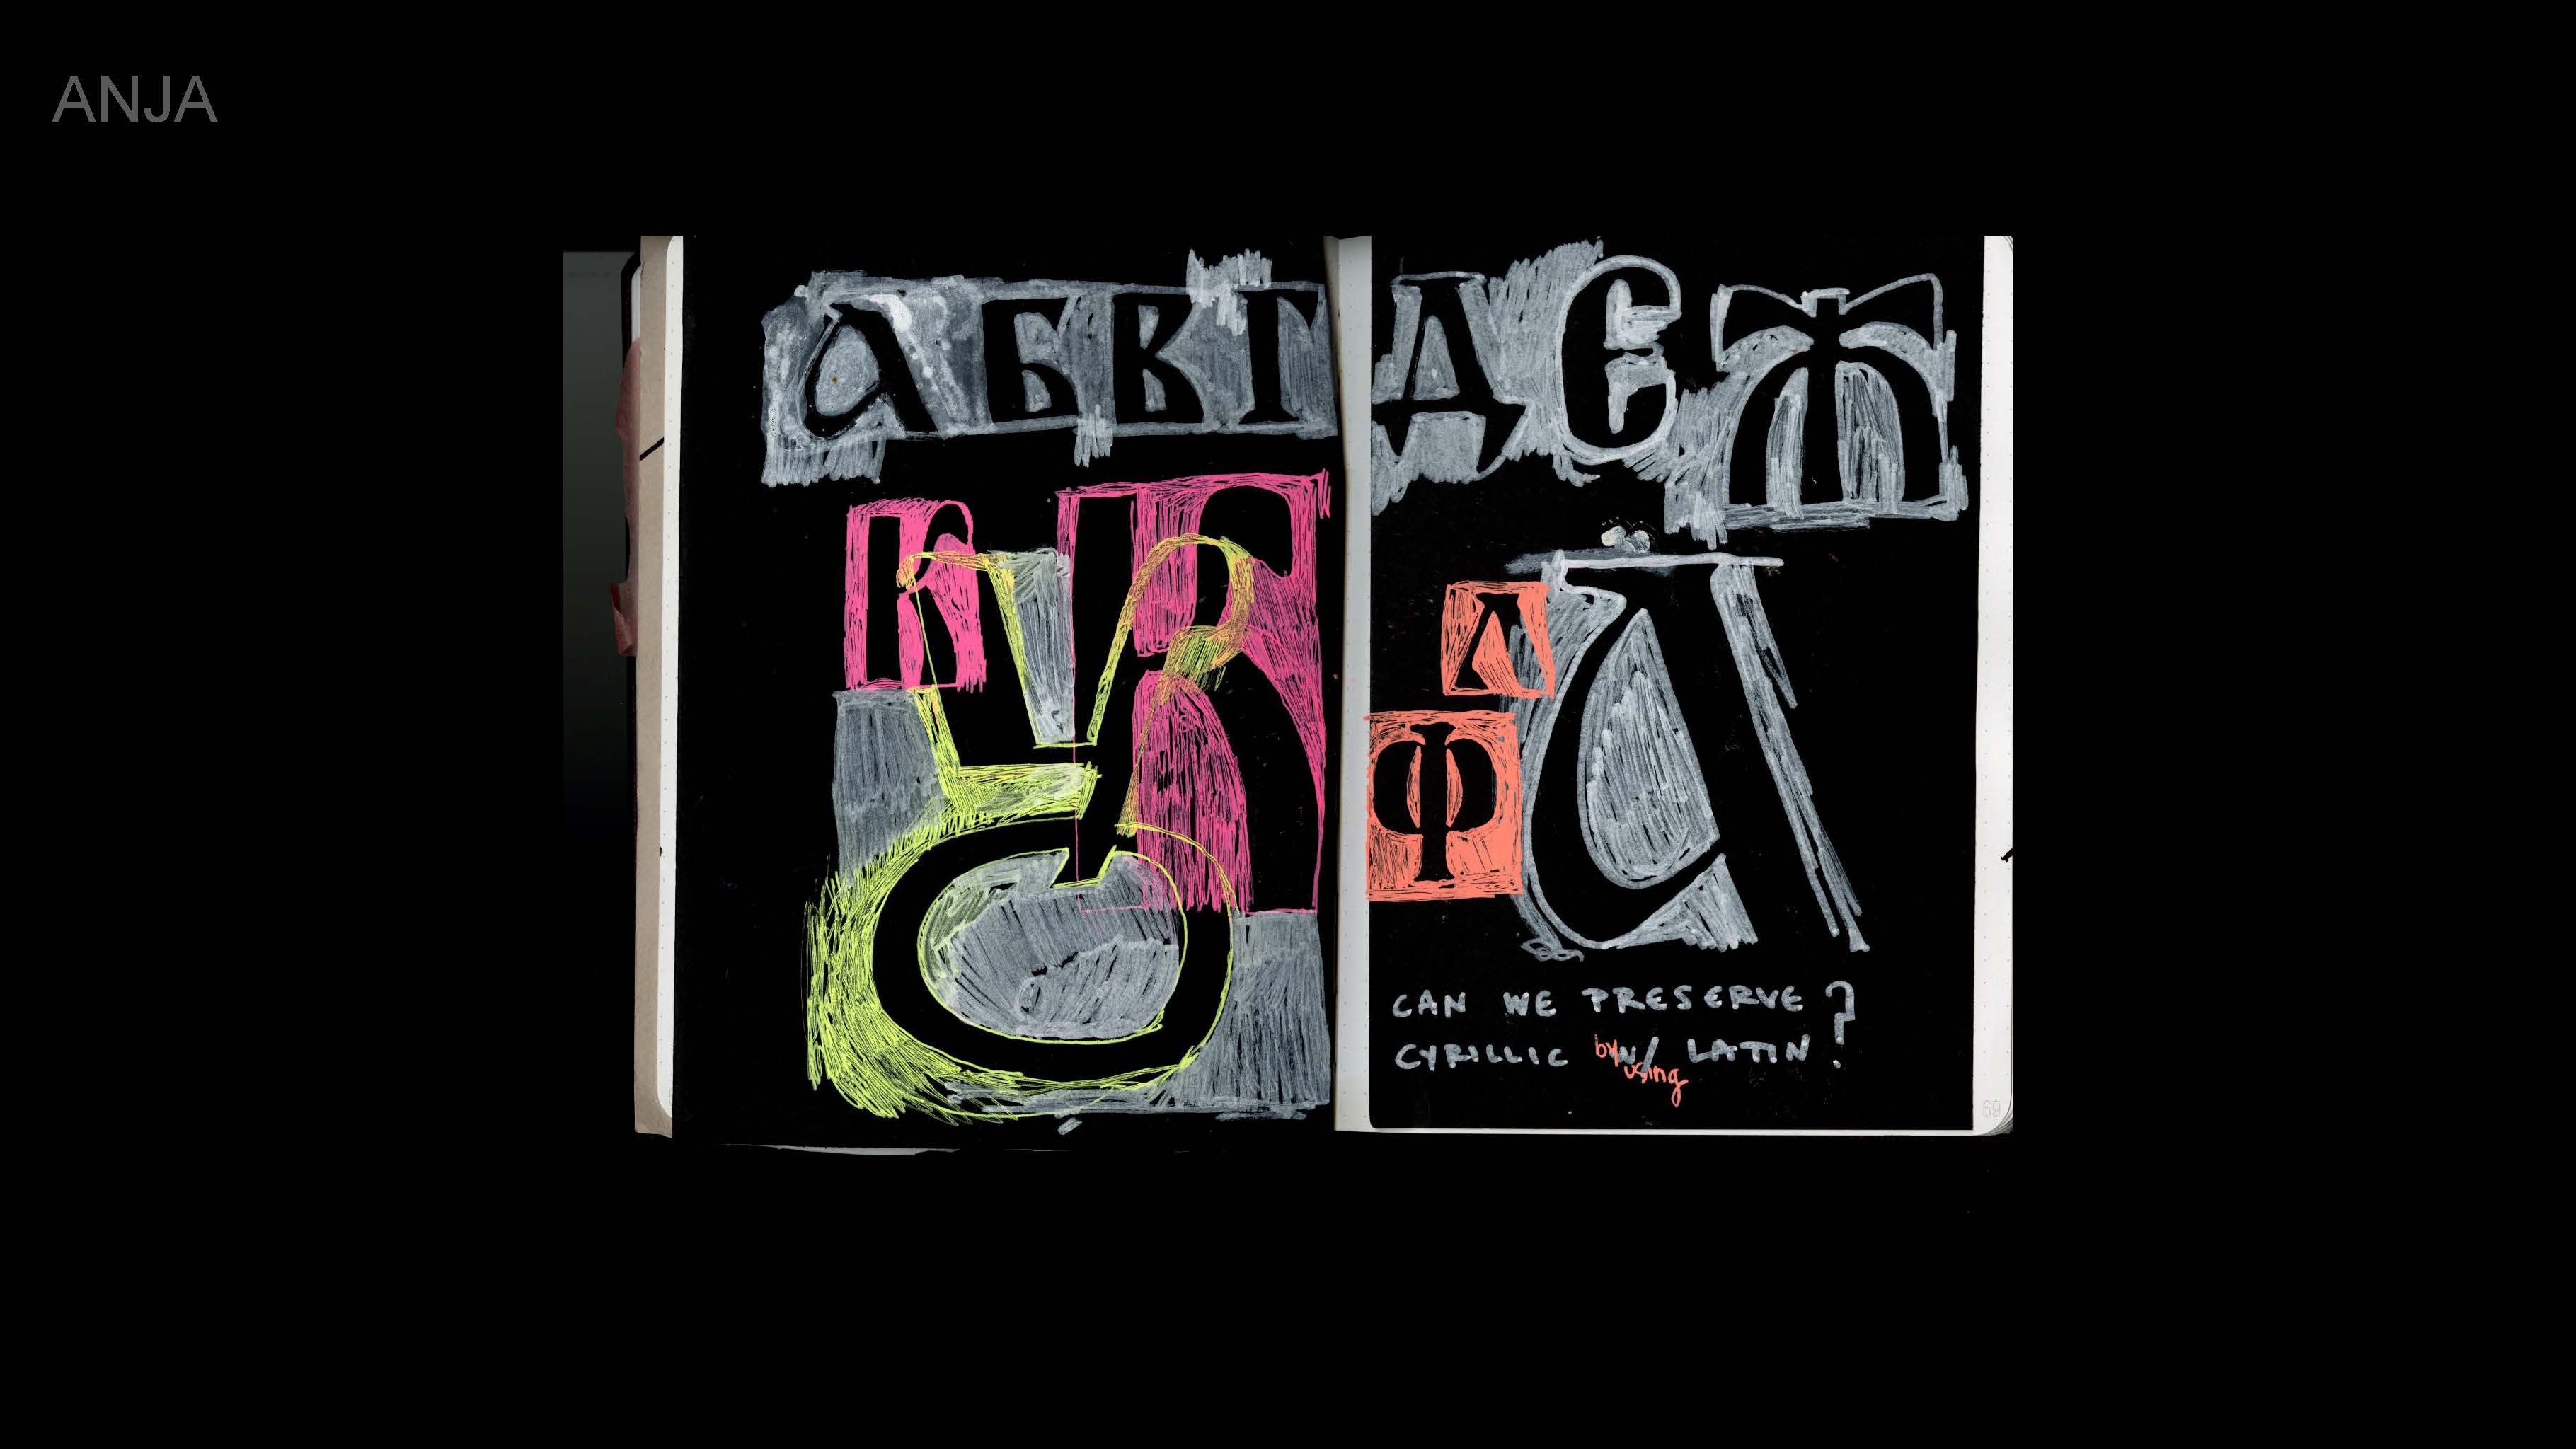 ANJA
АБВГДЄЖ
К К
Ѹ
Д
Ф
А
CAN WE PRESERVE
CYRILLIC by w/ using LATIN?
69